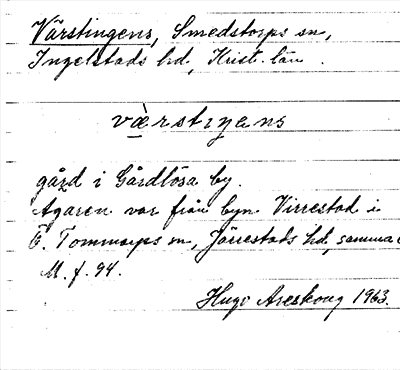 Värstingens, Smedstorps sn,
Ingelstads hd, Krist. län.
vè̱rstiŋens
gård i Gårdlösa by.
Ägaren var från byn Virrestad i
Ö. Tommarps sn, Järrestads hd, samma
M. f. 94.
Hugo Areskoug 1963.